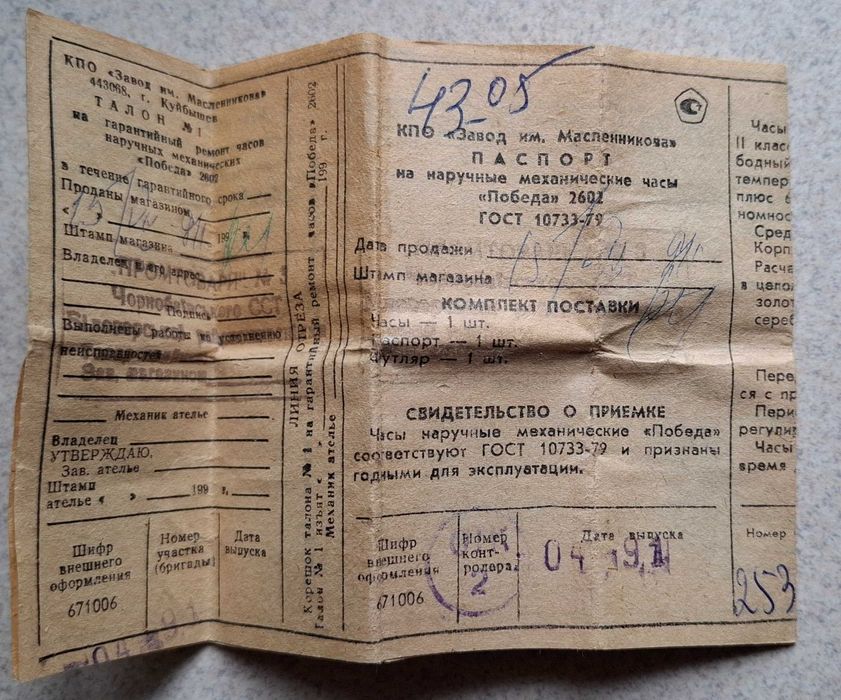 КПО «Завод им. Масленникова»
443068, г. Куйбышев
ТАЛОН № 1
на гарантийный ремонт часов
наручных механических
«Победа» 2602
в течение гарантийного срока
Проданы магазином
« 15 / 91 199 г.
Штамп магазина
Владелец и его адрес
№ 3
Чорнобаївського ССТ
Подпись
Выполнены работы по устранению
неисправностей
Зав. магазином
Механик ателье
Владелец
УТВЕРЖДАЮ.
Зав. ателье
Штамп
ателье « » 199 г.
Шифр
внешнего
оформления
671006
Номер
участка
(бригады)
Дата
выпуска
04 .91
ЛИНИЯ ОТРЕЗА
Корешок талона № 1 на гарантийный ремонт часов «Победа» 2602
Талон № 1 изъят « » 199 г.
Механик ателье
43-05
КПО «Завод им. Масленникова»
ПАСПОРТ
на наручные механические часы
«Победа» 2602
ГОСТ 10733-79
Дата продажи 15 / 91г.
Штамп магазина
КОМПЛЕКТ ПОСТАВКИ
Часы — 1 шт.
Паспорт — 1 шт.
Футляр — 1 шт.
СВИДЕТЕЛЬСТВО О ПРИЕМКЕ
Часы наручные механические «Победа»
соответствуют ГОСТ 10733-79 и признаны
годными для эксплуатации.
Шифр
внешнего
оформления
671006
Номер
конт-
ролера
2
Дата выпуска
04 .91
Часы
II клас
бодный
темпер
плюс 6
номнос
Сред
Корп
Расча
в целом
золот
сереб
Пере
ся с пр
Пери
регулир
Часы
время
Номер
253